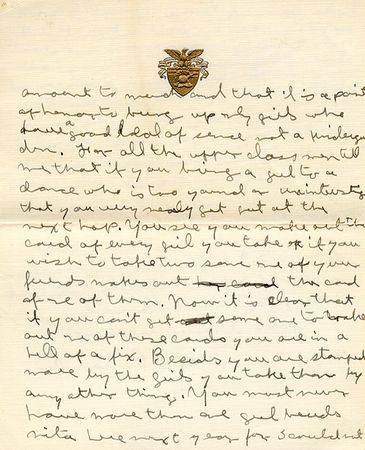 amount to much and that it is a point
of honor to bring up only girls who
have a good deal of sense not a kinderga
den. For all the upper class men tell
me that if you bring a girl to a
dance who is too young or uninteresting
that you very nearly get out at the
next hop. You see you make out the
card of every girl you take & if you
wish to take two some one of your
friends makes out the card
of one of them. Now it is clear that
if you can't get some one to make
out one of these cards you are in a
hell of a fix. Besids you are stamped
more by the girls you take than by
any other thing. You must never
have more than one girl besids
here next year for I could not